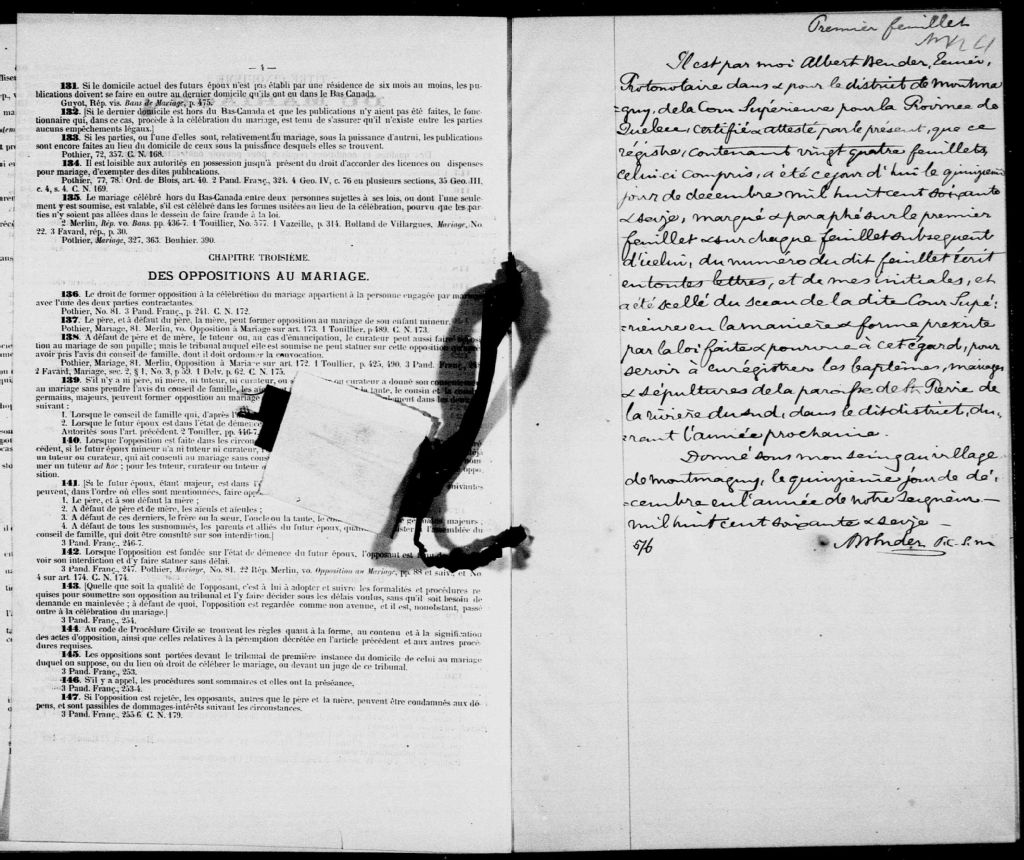 — 4 —
131. Si le domicile actuel des futurs époux n'est pas établi par une résidence de six mois au moins, les pu-
blications doivent se faire en outre au dernier domicile qu'ils ont eu dans le Bas Canada.
Guyot, Rép. vis. Bans de Mariage, p. 475.
132. [Si le dernier domicile est hors du Bas-Canada et que les publications n'y aient pas été faites, le fonc-
tionnaire qui, dans ce cas, procède à la célébration du mariage, est tenu de s'assurer qu'il n'existe entre les parties
aucuns empêchements légaux.]
133. Si les parties, ou l'une d'elles sont, relativement au mariage, sous la puissance d'autrui, les publications
sont encore faites au lieu du domicile de ceux sous la puissance desquels elles se trouvent.
Pothier, 72, 357. C. N. 168.
134. Il est loisible aux autorités en possession jusqu'à présent du droit d'accorder des licences ou dispenses
pour mariage, d'exempter des dites publications.
Pothier, 77, 78. Ord. de Blois, art. 40. 2 Pand. Franç., 324. 4 Geo. IV, c. 76 en plusieurs sections, 35 Geo. III,
c. 4, s. 4. C. N. 169.
135. Le mariage célébré hors du Bas-Canada entre deux personnes sujettes à ses lois, ou dont l'une seule-
ment y est soumise, est valable, s'il est célébré dans les formes usitées au lieu de la célébration, pourvu que les par-
ties n'y soient pas allées dans le dessein de faire fraude à la loi.
2 Merlin, Rép. vo. Bans. pp. 436-7. 1 Touillier, No. 577. 1 Vazeille, p. 314. Rolland de Villargues, Mariage, No.
22. 3 Favard, rép., p. 30.
Pothier, Mariage, 327, 363. Bouhier. 390.
CHAPITRE TROISIÈME.
DES OPPOSITIONS AU MARIAGE.
136. Le droit de former opposition à la célébrition du mariage appartient à la personne engagée par mariage
avec l'une des deux parties contractantes.
Pothier, No. 81. 3 Pand. Franç., p. 241. C. N. 172.
137. Le père, et à défaut du père, la mère, peut former opposition au mariage de son enfant mineur.
Pothier, Mariage, 81. Merlin, vo. Opposition à Mariage sur art. 173. 1 Touillier, p 489. C. N. 173.
138. A défaut de père et de mère, le tuteur ou, au cas d'émancipation, le curateur peut aussi faire opposi-
tion au mariage de son pupille; mais le tribunal auquel elle est soumise ne peut statuer sur cette opposition
avoir pris l'avis du conseil de famille, dont il doit ordonner la convocation.
Pothier, Mariage, 81. Merlin, Opposition à Mariage sur art. 172. 1 Touillier, p. 425, 490. 3 Pand. Franç.
2 Favard, Mariage, sec. 2, § 1, No. 3, p 58. 1 Delv. p. 62. C. N. 175.
139. S'il n'y a ni père, ni mère, ni tuteur, ni curateur, ou curateur a donné son consentement
au mariage sans prendre l'avis du conseil de famille, les la tante, le cousin et
germains, majeurs, peuvent former opposition au mariage ment dans les deux
suivant :
1. Lorsque le conseil de famille qui, d'après l'
2. Lorsque le futur époux est dans l'état de démence
Autorités sous l'art. précédent. 2 Touiller, pp. 446-7.
140. Lorsque l'opposition est faite dans les circon
cédent, si le futur époux mineur n'a ni tuteur ni curateur,
un tuteur ou curateur, qui ait consenti au mariage sans cons
mer un tuteur ad hoc ; pour les tuteur, curateur ou tuteur
sition.
141. [Si le futur époux, étant majeur, est dans l' suivantes
peuvent, dans l'ordre où elles sont mentionnées, faire opp
1. Le père, et à son défaut la mère ;
2. A défaut de père et de mère, les aïeuls et aïeules ;
3. A défaut de ces derniers, le frère ou la sœur, l'oncle ou la tante, le majeurs ;
4. A défaut de tous les susnommés, les parents et alliés du futur époux, l'assemblée du
conseil de famille, qui doit être consulté sur son interdiction.]
3 Pand. Franç., 246-7.
142. Lorsque l'opposition est fondée sur l'état de démence du futur époux, l'opposant est
voir son interdiction et d'y faire statuer sans délai.
3 Pand. Franç., 247. Pothier, Mariage, No. 81. 22 Rép. Merlin, vo. Opposition au Mariage, pp. 88 et suiv., et No
4 sur art. 174. C. N. 174.
143. [Quelle que soit la qualité de l'opposant, c'est à lui à adopter et suivre les formalités et procédures re
quises pour soumettre son opposition au tribunal et l'y faire décider sous les délais voulus, sans qu'il soit besoin de
demande en mainlevée ; à défaut de quoi, l'opposition est regardée comme non avenue, et il est, nonobstant, passé
outre à la célébration du mariage.]
3 Pand. Franç., 254.
144. Au code de Procédure Civile se trouvent les règles quant à la forme, au contenu et à la signification
des actes d'opposition, ainsi que celles relatives à la péremption décrétée en l'article précédent et aux autres procé-
dures requises.
145. Les oppositions sont portées devant le tribunal de première instance du domicile de celui au mariage
duquel on suppose, ou du lieu où droit de célébrer le mariage, ou devant un juge de ce tribunal.
3 Pand. Franç., 253.
146. S'il y a appel, les procédures sont sommaires et elles ont la préséance.
3 Pand. Franç., 253-4.
147. Si l'opposition est rejetée, les opposants, autres que le père et la mère, peuvent être condamnés aux dé-
pens, et sont passibles de dommages-intérêts suivant les circonstances.
3 Pand. Franç., 255-6. C. N. 179.
Premier feuillet
Il est par moi Albert Bender, Ecuier,
Protonotaire dans & pour le district de Montma
gny, de la Cour Supérieure pour la Province de
Québec, certifié & attesté par le présent, que ce
régistre, contenant vingt quatre feuillets,
celui ci compris, a été ce jour d'hui le quinzième
jour de décembre mil huit cent soixante
& seize, marqué & paraphé sur le premier
feuillet & sur chaque feuillet subséquent
d'icelui, du numéro du dit feuillet écrit
en toutes lettres, et de mes initiales, et
a été scellé du sceau de la dite Cour Supé-
rieure en la manière & forme prescrite
par la loi faite & pourvue à cet égard, pour
servir à enrégistrer les baptêmes, mariages
& sépultures de la paroisse de St Pierre de
la rivière du sud, dans le dit district, du-
rant l'année prochaine.
Donné sous mon seing au village
de Montmagny, le quinzième jour de dé-
cembre en l'année de notre Seigneur
mil huit cent soixante & seize
A Bender P.C.S.M